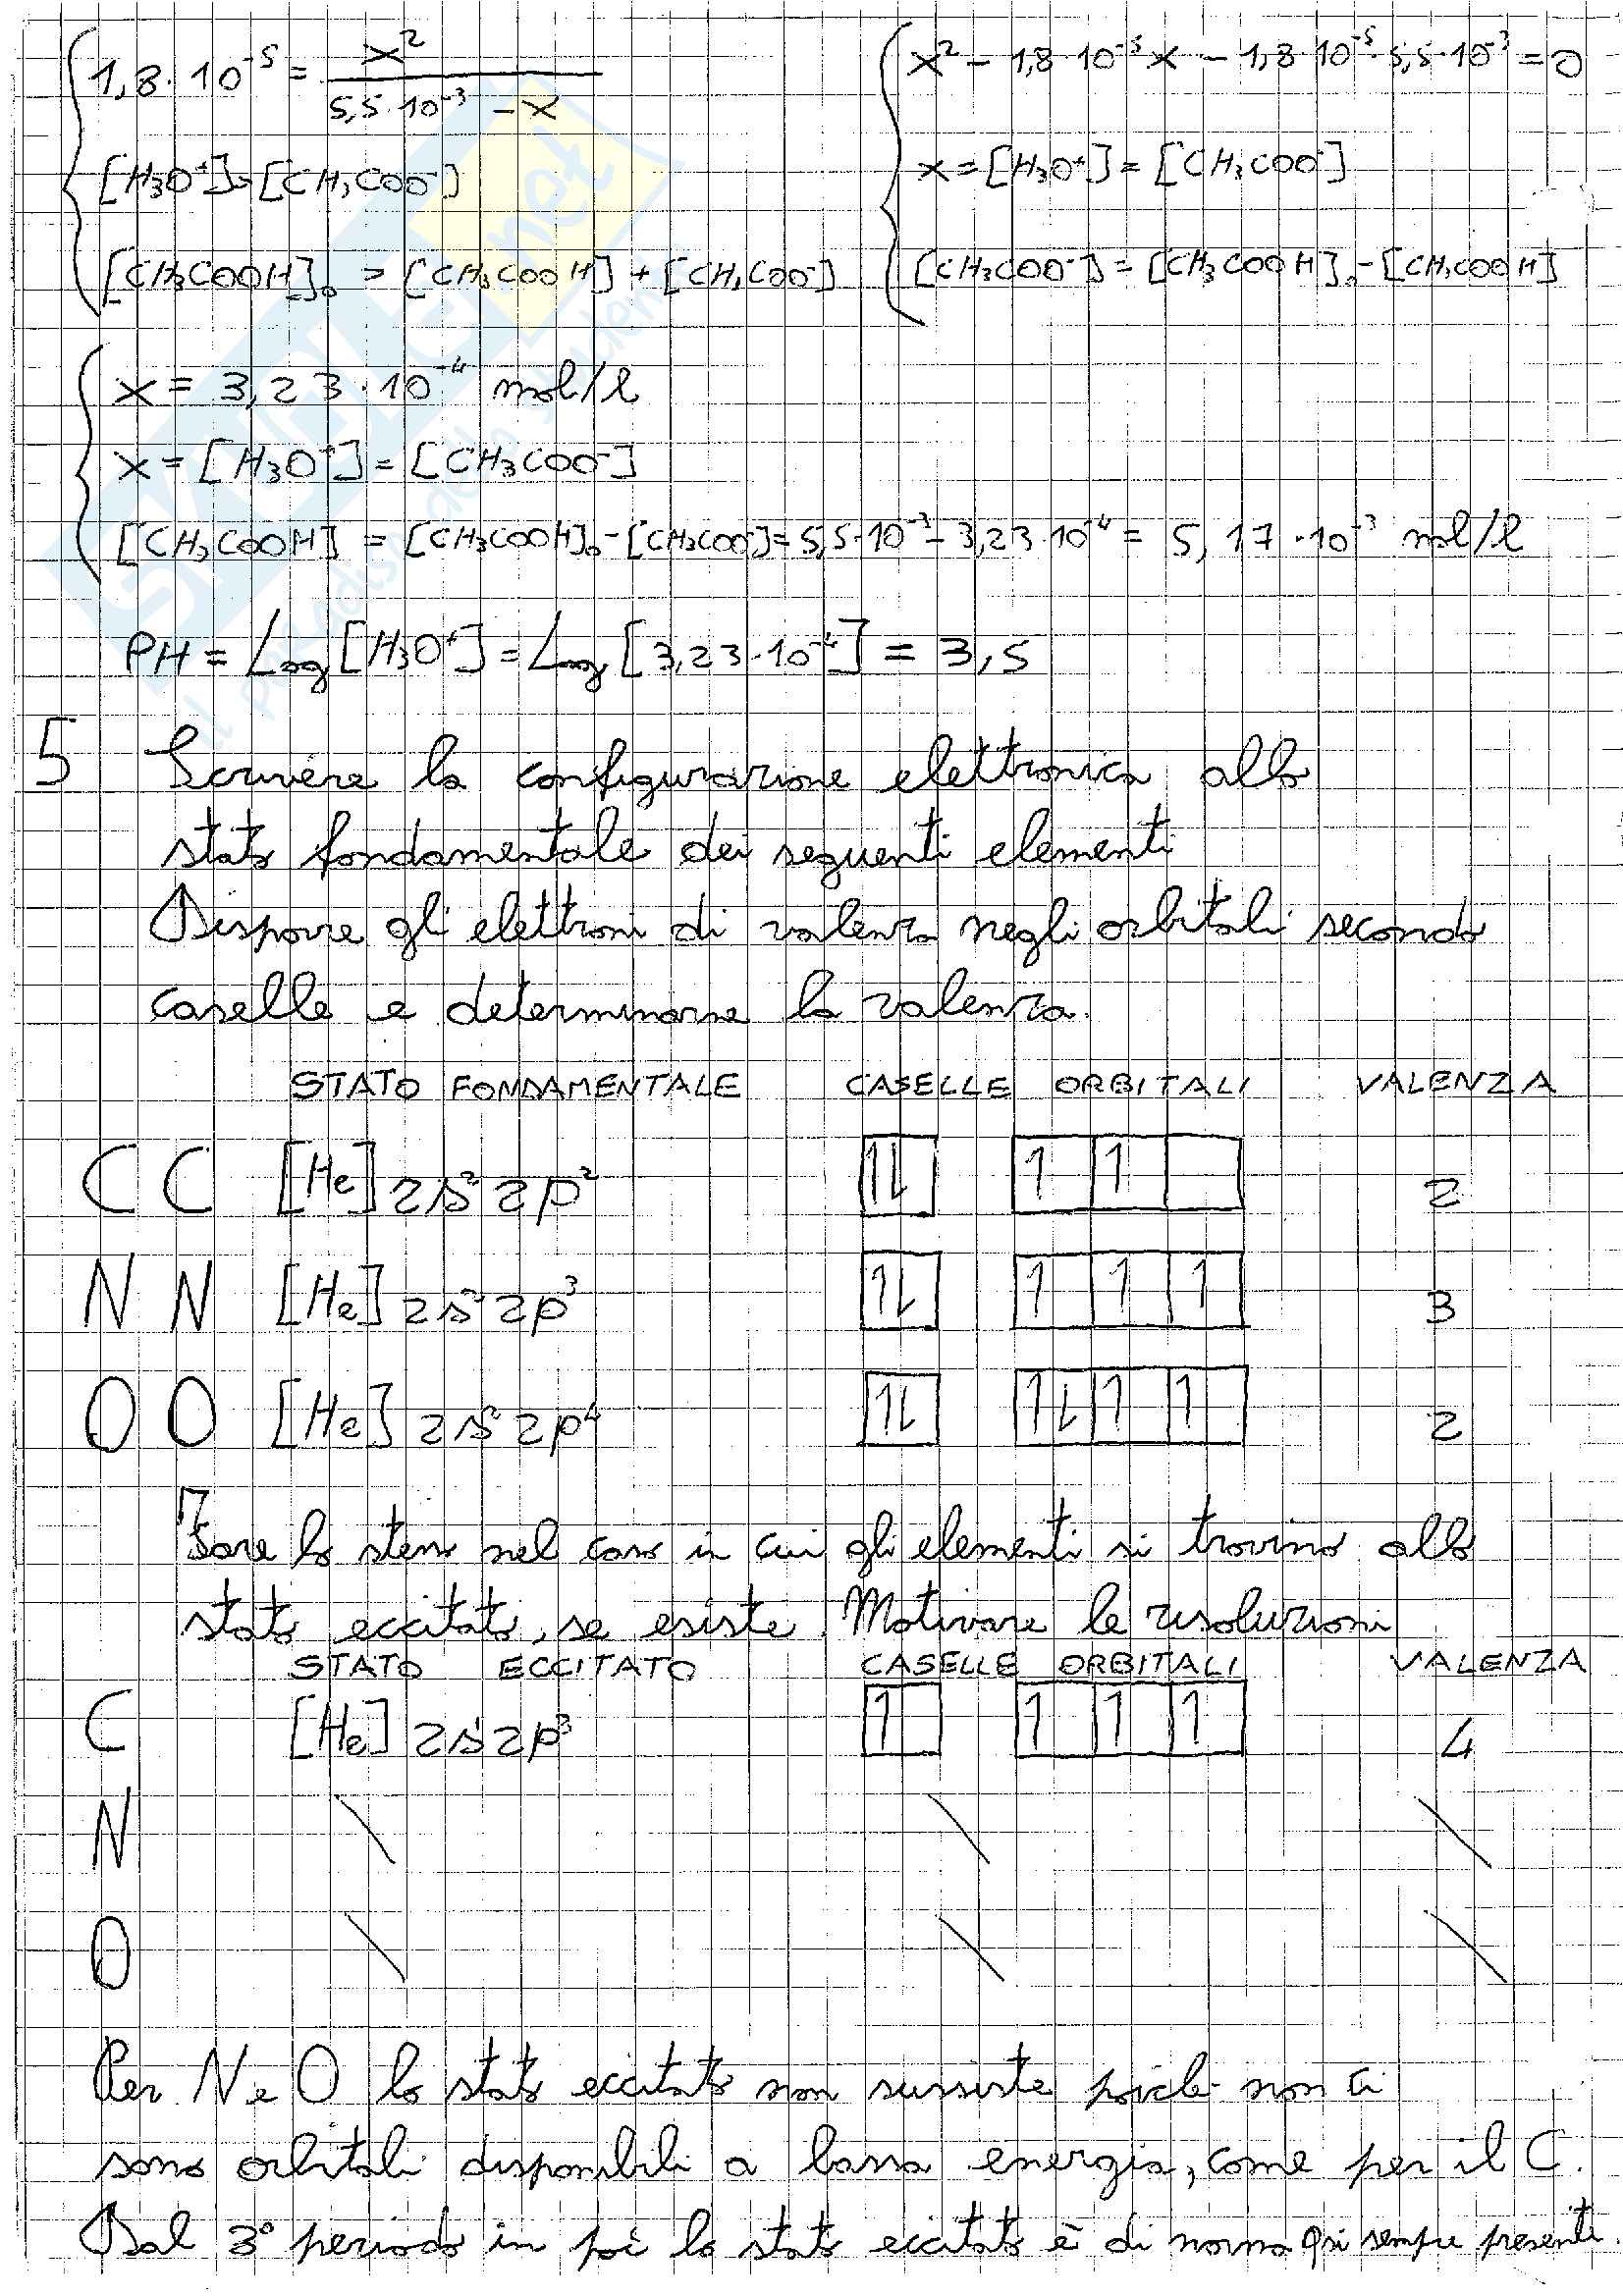 1,8·10⁻⁵ = x² / (5,5·10⁻³ - x)
x² - 1,8·10⁻⁵x - 1,8·10⁻⁵·5,5·10⁻³ = 0
[H₃O⁺] = [CH₃COO⁻]
x = [H₃O⁺] = [CH₃COO⁻]
[CH₃COOH]₀ = [CH₃COOH] + [CH₃COO⁻]
[CH₃COO⁻] = [CH₃COOH]₀ - [CH₃COOH]
x = 3,23·10⁻⁴ mol/l
x = [H₃O⁺] = [CH₃COO⁻]
[CH₃COOH] = [CH₃COOH]₀ - [CH₃COO⁻] = 5,5·10⁻³ - 3,23·10⁻⁴ = 5,17·10⁻³ mol/l
PH = Log [H₃O⁺] = Log [3,23·10⁻⁴] = 3,5
5 Scrivere la configurazione elettronica allo
stato fondamentale dei seguenti elementi
Disporre gli elettroni di valenza negli orbitali secondo
caselle e determinarne la valenza.
STATO FONDAMENTALE CASELLE ORBITALI VALENZA
C C [He] 2s² 2p² ↿⇂ ↿ ↿ 2
N N [He] 2s² 2p³ ↿⇂ ↿ ↿ ↿ 3
O O [He] 2s² 2p⁴ ↿⇂ ↿⇂ ↿ ↿ 2
Fare lo stesso nel caso in cui gli elementi si trovino allo
stato eccitato, se esiste. Motivare le risoluzioni
STATO ECCITATO CASELLE ORBITALI VALENZA
C [He] 2s¹ 2p³ ↿ ↿ ↿ ↿ 4
N \ \ \
O \ \ \
Per N e O lo stato eccitato non sussiste poiché non ci
sono orbitali disponibili a bassa energia, come per il C.
Dal 3° periodo in poi lo stato eccitato è di norma qsi sempre presente.